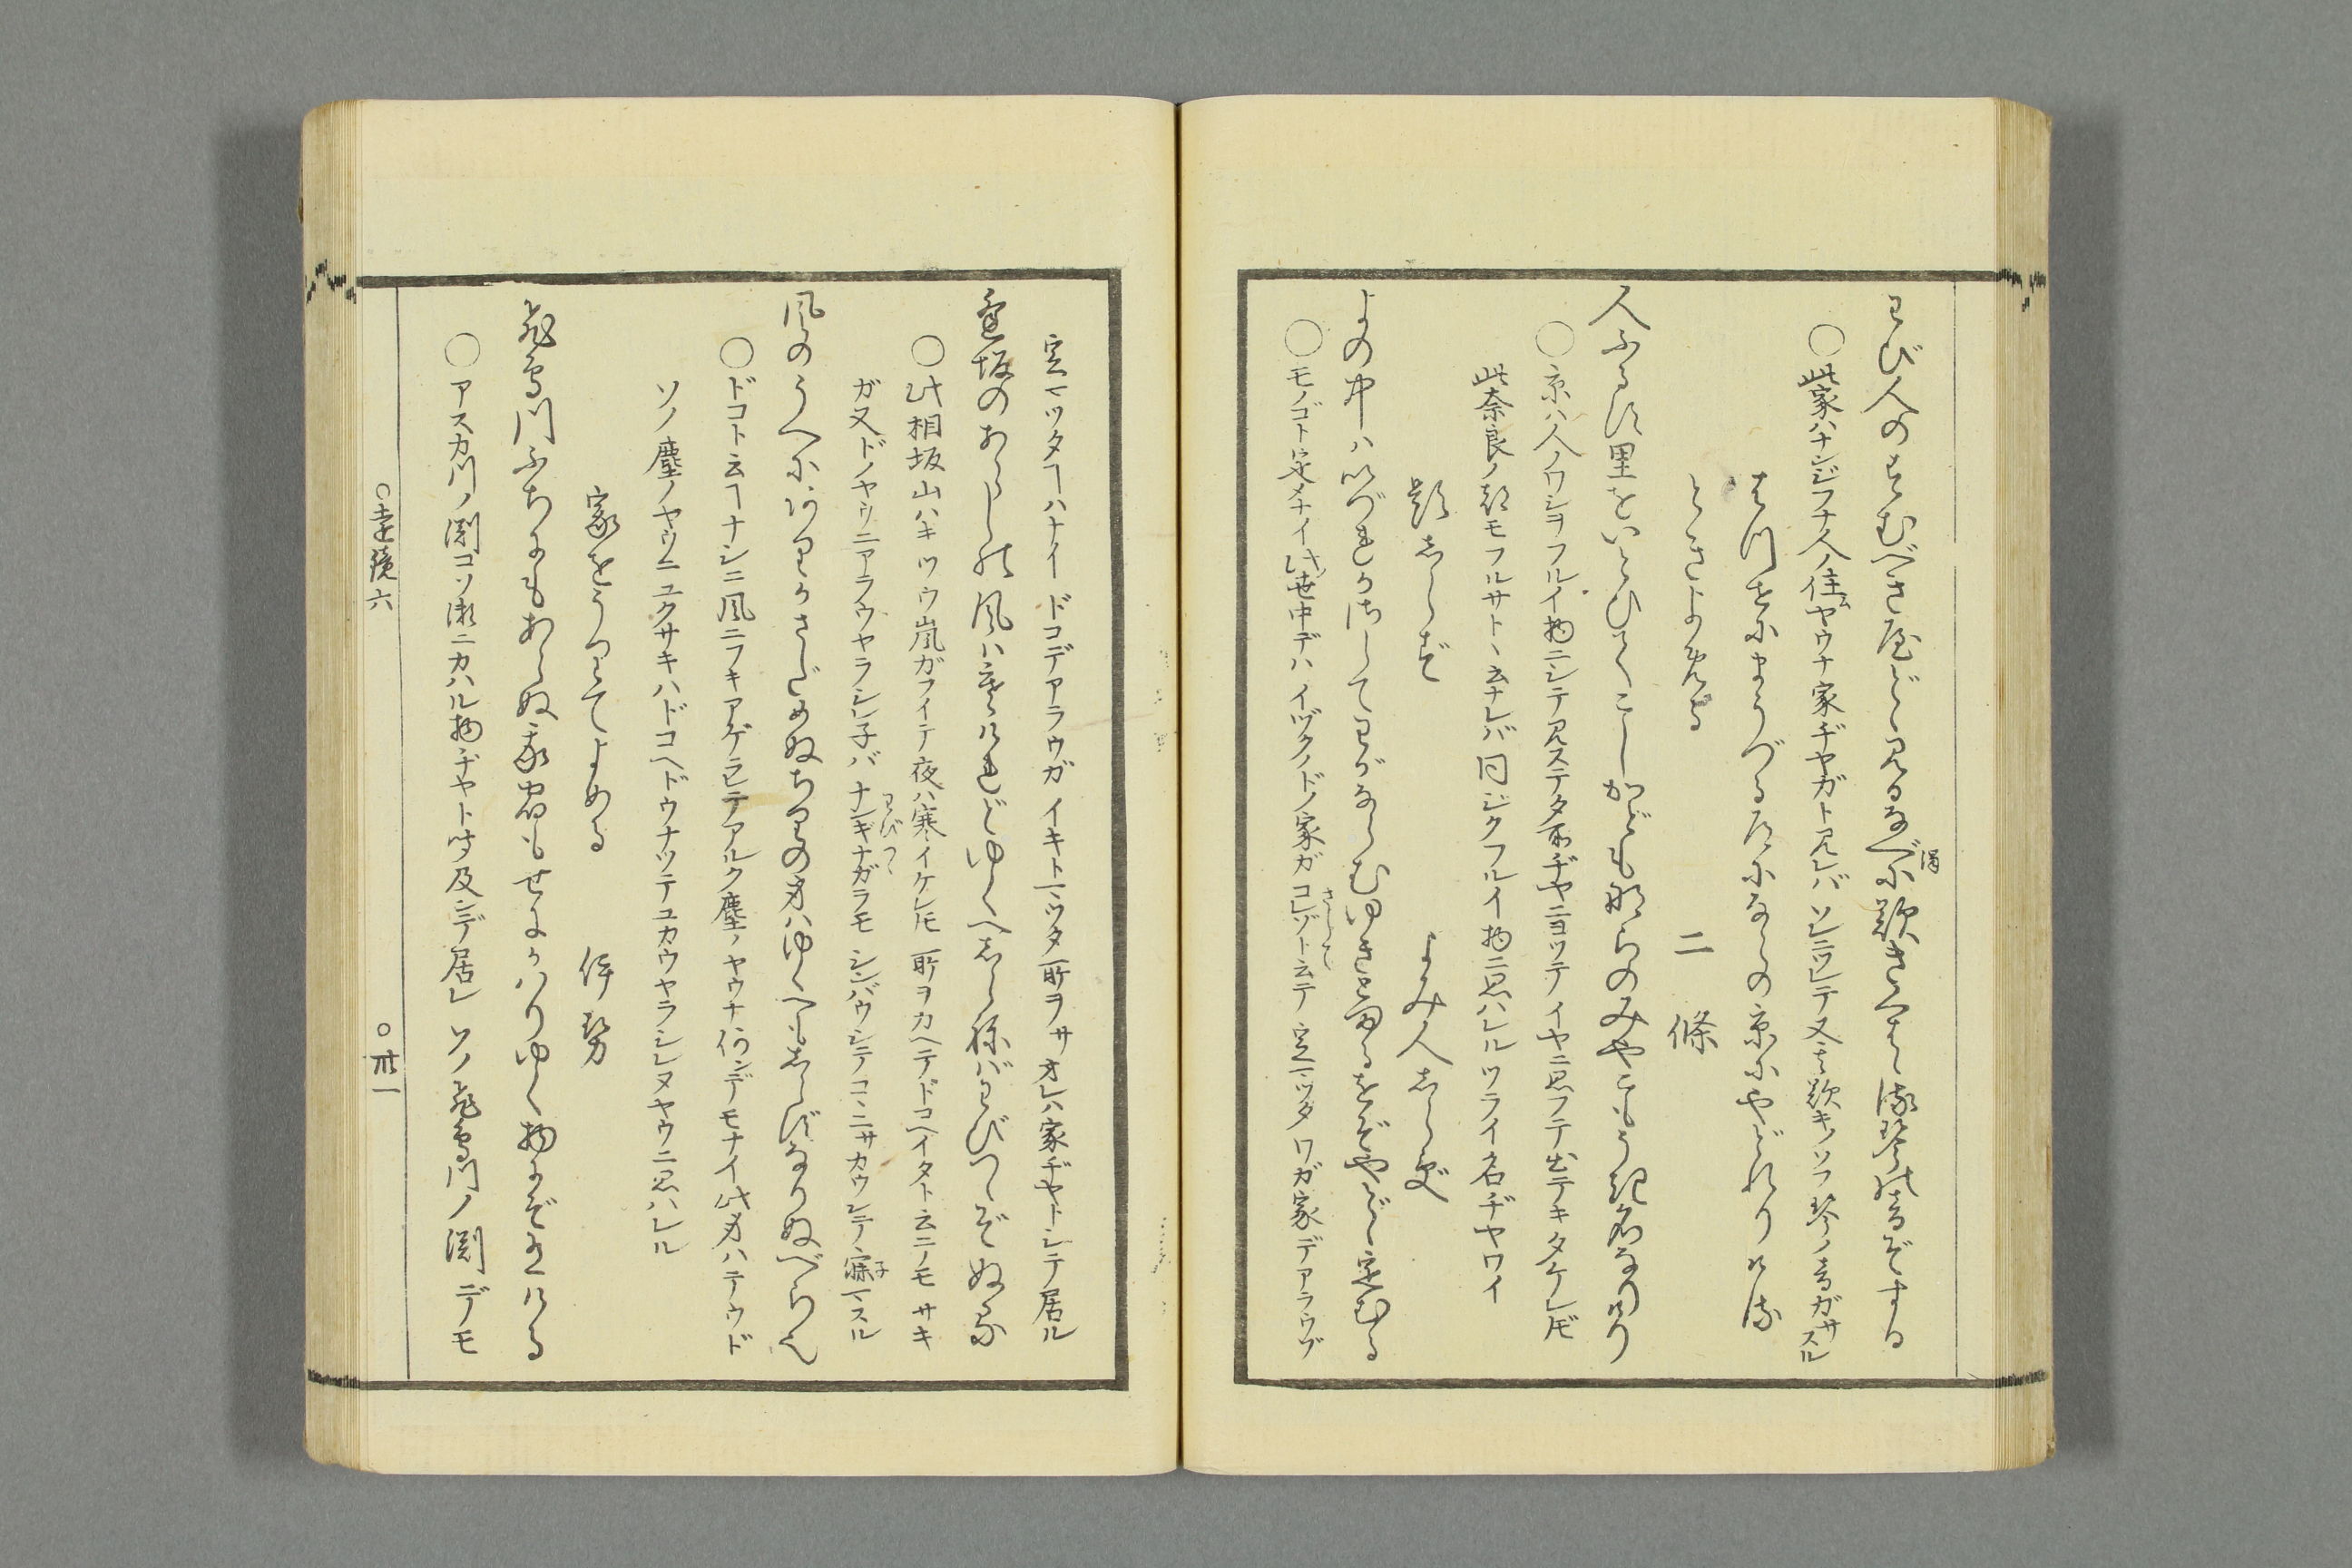 わび人のすむべき屋どゝ見るなべに歎きくはゝる琴の音ぞする
○此家ハナンジフナ人ノ住ムヤウナ家ヂヤガト見レバ ソレニツレテ又其歎キノソフ琴ノ音ガサスル
はつせにまうづる道にならの京にやどれりける
ときよめる
二條
人ふるす里をいとひてこしかどもならのみやこもうき名なりけり
○京ハ人ノワシヲフルイ物ニシテ見ステタ所ヂヤニヨツテ イヤニ思フテ出テキタケレドモ
此奈良ノ都モフルサトヽ云ナレバ 同ジクフルイ物ニ思ハレル ツライ名ヂヤワイ
題しらず
よみ人しらず
よの中ハいづれかさしてわがならむゆきとまるをぞやどゝ定むる
○モノゴト定メナイ此世中デハ イヅクノドノ家ガ コレゾト云テ 定マツタ ワガ家デアラウゾ
さして
定マツタヿハナイ ドコデアラウガ イキトマツタ所ヲサ オレハ家ヂヤトシテ居ル
逢坂のあらしの風ハ寒けれどゆくへしらねばわびつゝぞぬる
○此相坂山ハキツウ嵐ガフイテ 夜ハ寒イケレドモ 所ヲカヘテドコヘイタト云テモ サキ
ガ又ドノヤウニアラウヤラシレ子バ ナンギナガラモ シンバウシテコヽニサカウシテ寐マスル
わびつゝ
風のうへにありかさだめぬちりの身ハゆくへもしらずなりぬべらなり
○ドコト云ヿナシニ風ニフキアゲラレテアルク塵ノヤウナ 何ンデモナイ此身ハ テウド
ソノ塵ノヤウニユクサキハドコヘドウナツテユカウヤラシレヌヤウニ思ハレル
家をうりてよめる
伊勢
飛鳥川ふちにもあらぬ我宿もせにかはりゆく物にぞ有ける
○アスカ川ノ淵コソ瀬ニカハル物ヂヤト聞及ンデ居レ ソノ飛鳥川ノ淵デモ
○遠鏡六
○卅一